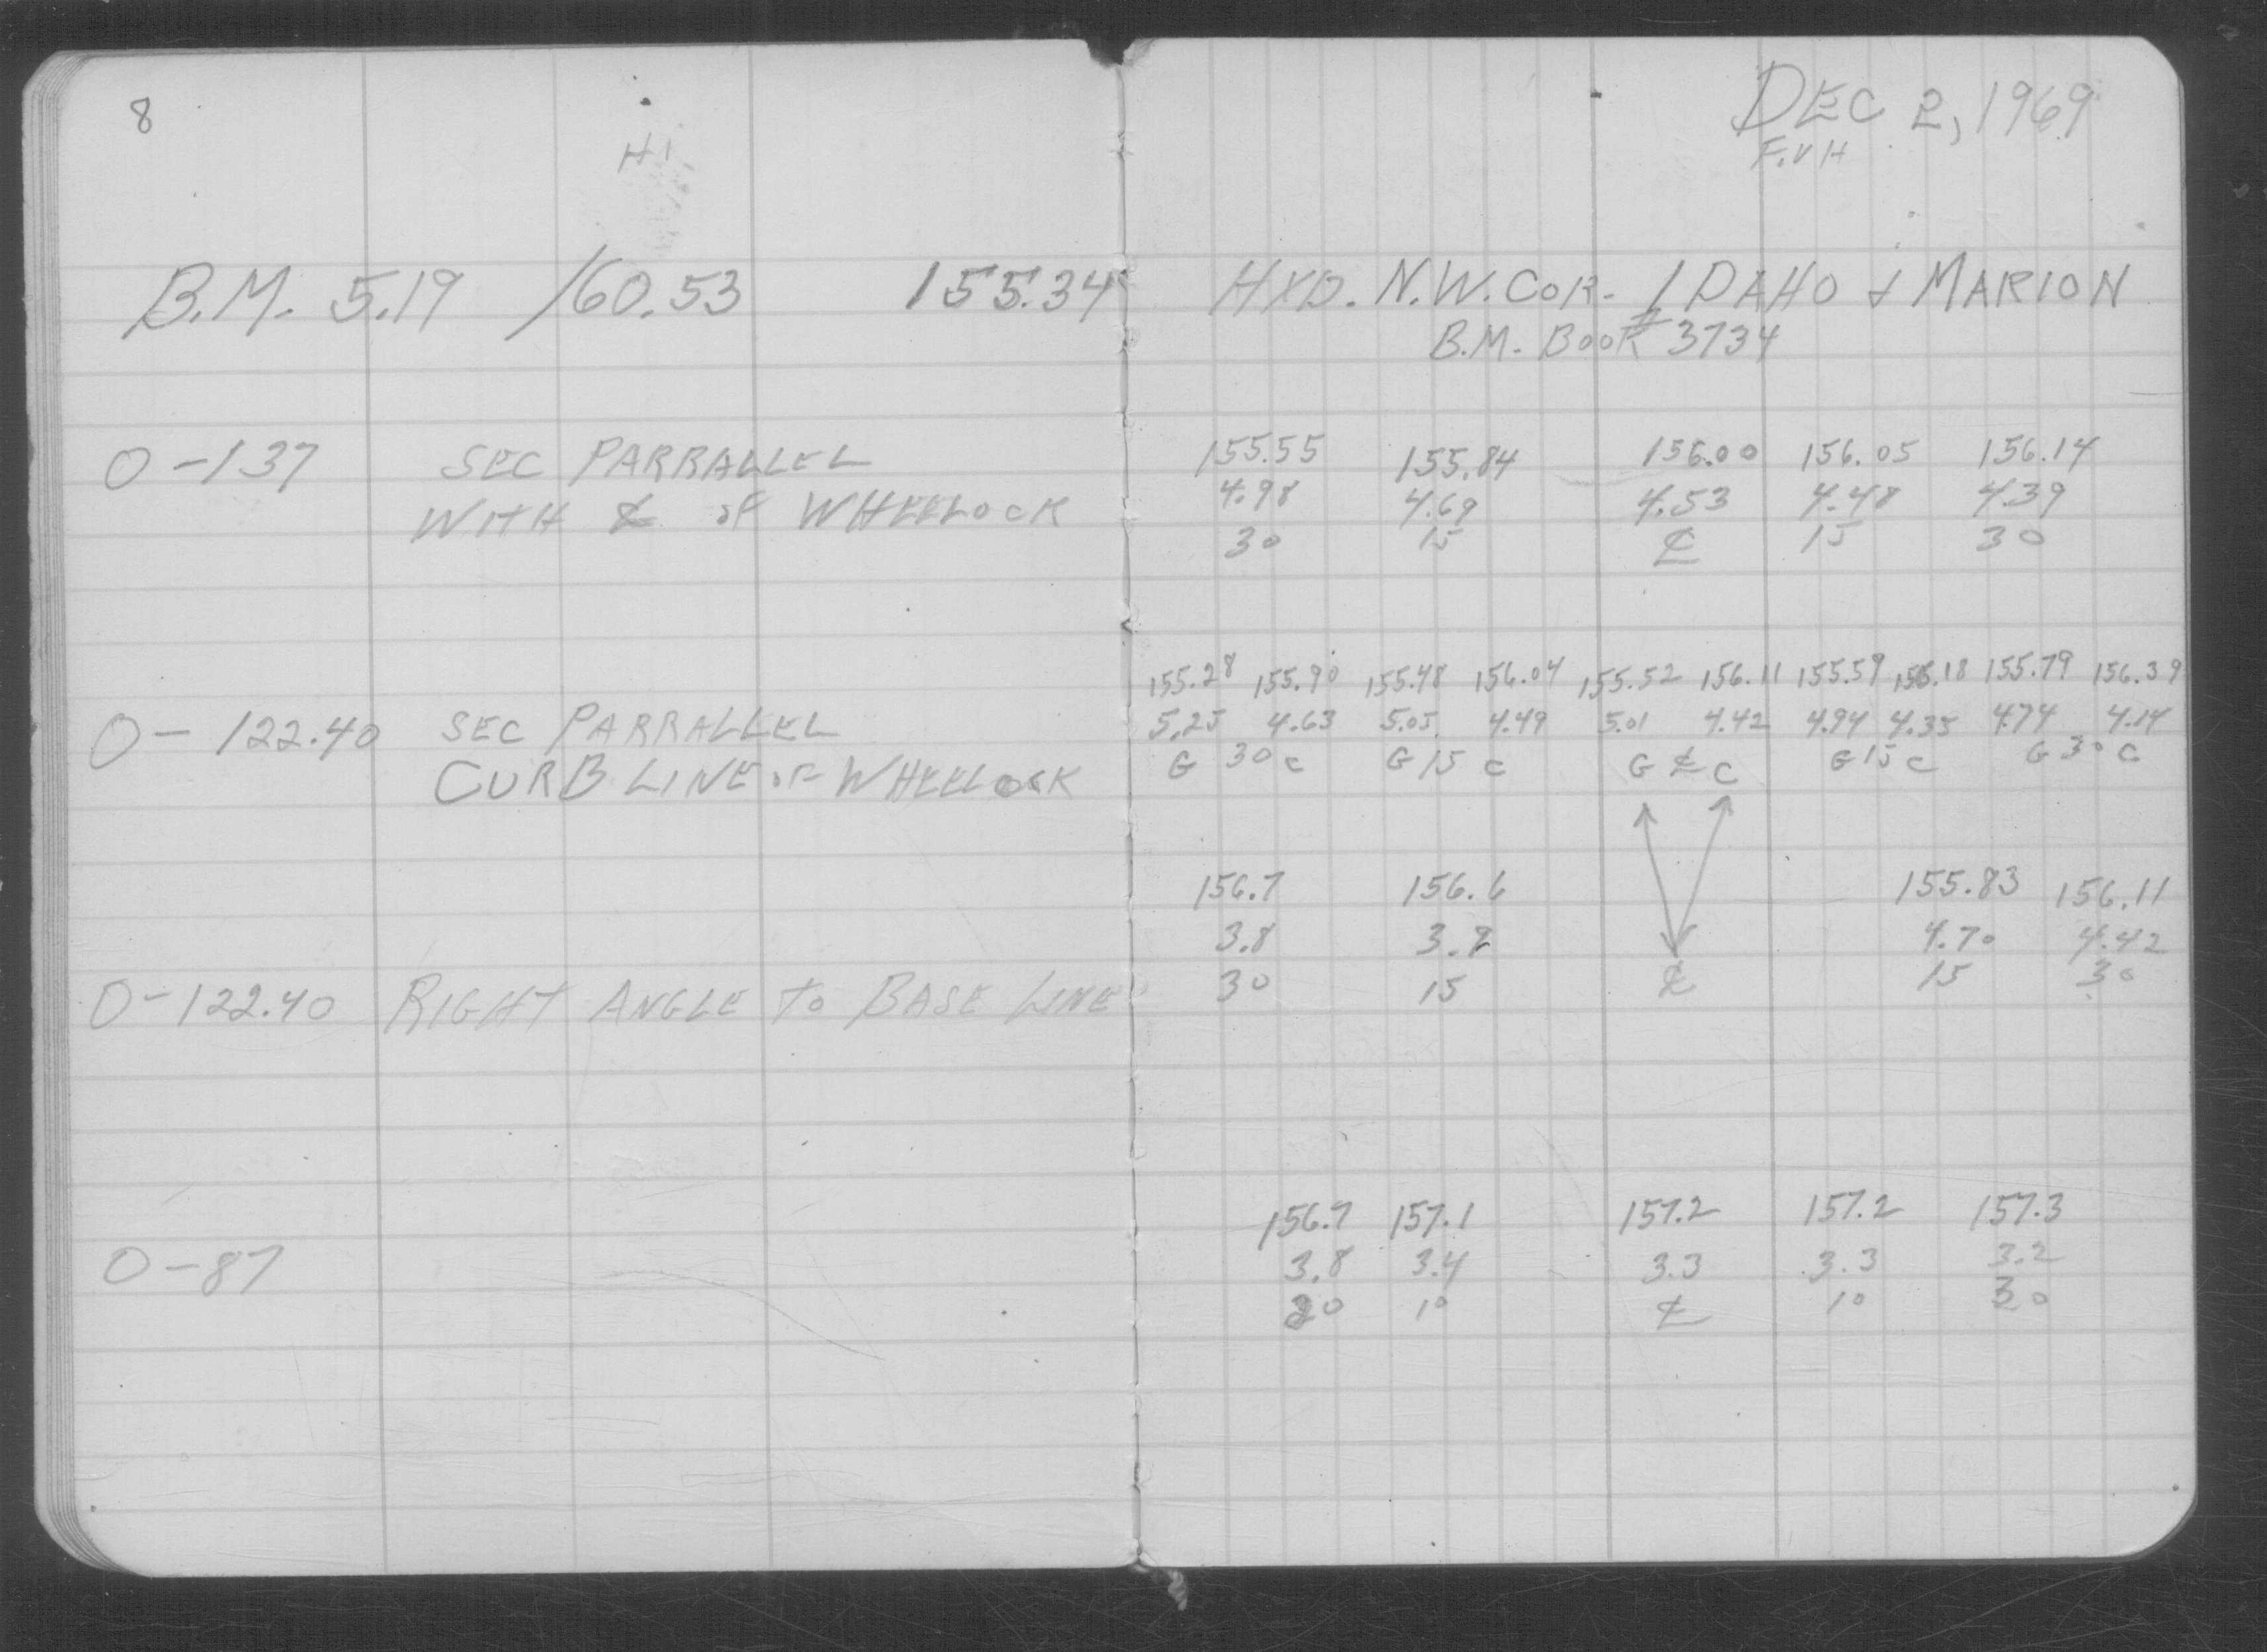 8
HI
DEC 2, 1969
F.VH
B.M. 5.19 160.53 155.34 HYD. N.W. COR. IDAHO & MARION
B.M. BOOK # 3734
155.55 155.84 156.00 156.05 156.14
0-137 SEC PARRALLEL 4.98 4.69 4.53 4.48 4.39
WITH ℄ OF WHEELOCK 30 15 ℄ 15 30
155.28 155.90 155.48 156.04 155.52 156.11 155.59 156.18 155.79 156.39
0-122.40 SEC PARRALLEL 5.25 4.63 5.05 4.49 5.01 4.42 4.94 4.35 4.74 4.14
CURB LINE OF WHEELOCK G 30 C G 15 C G ℄ C G 15 C G 30 C
156.7 156.6 155.83 156.11
3.8 3.9 4.70 4.42
0-122.40 RIGHT ANGLE TO BASE LINE 30 15 ℄ 15 30
156.7 157.1 157.2 157.2 157.3
0-87 3.8 3.4 3.3 3.3 3.2
10 ℄ 10